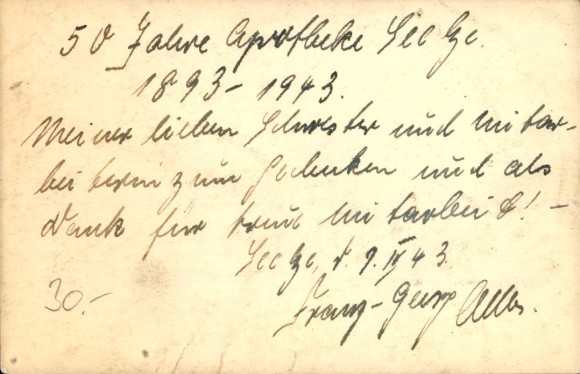 50 Jahre Apotheke
1893 - 1943.
Meiner lieben Schwester und Mitar-
beiterin zum Gedenken und als
Dank für treue Mitarbeit! -
d. 9. IV 43.
30.-
Franz-Georg